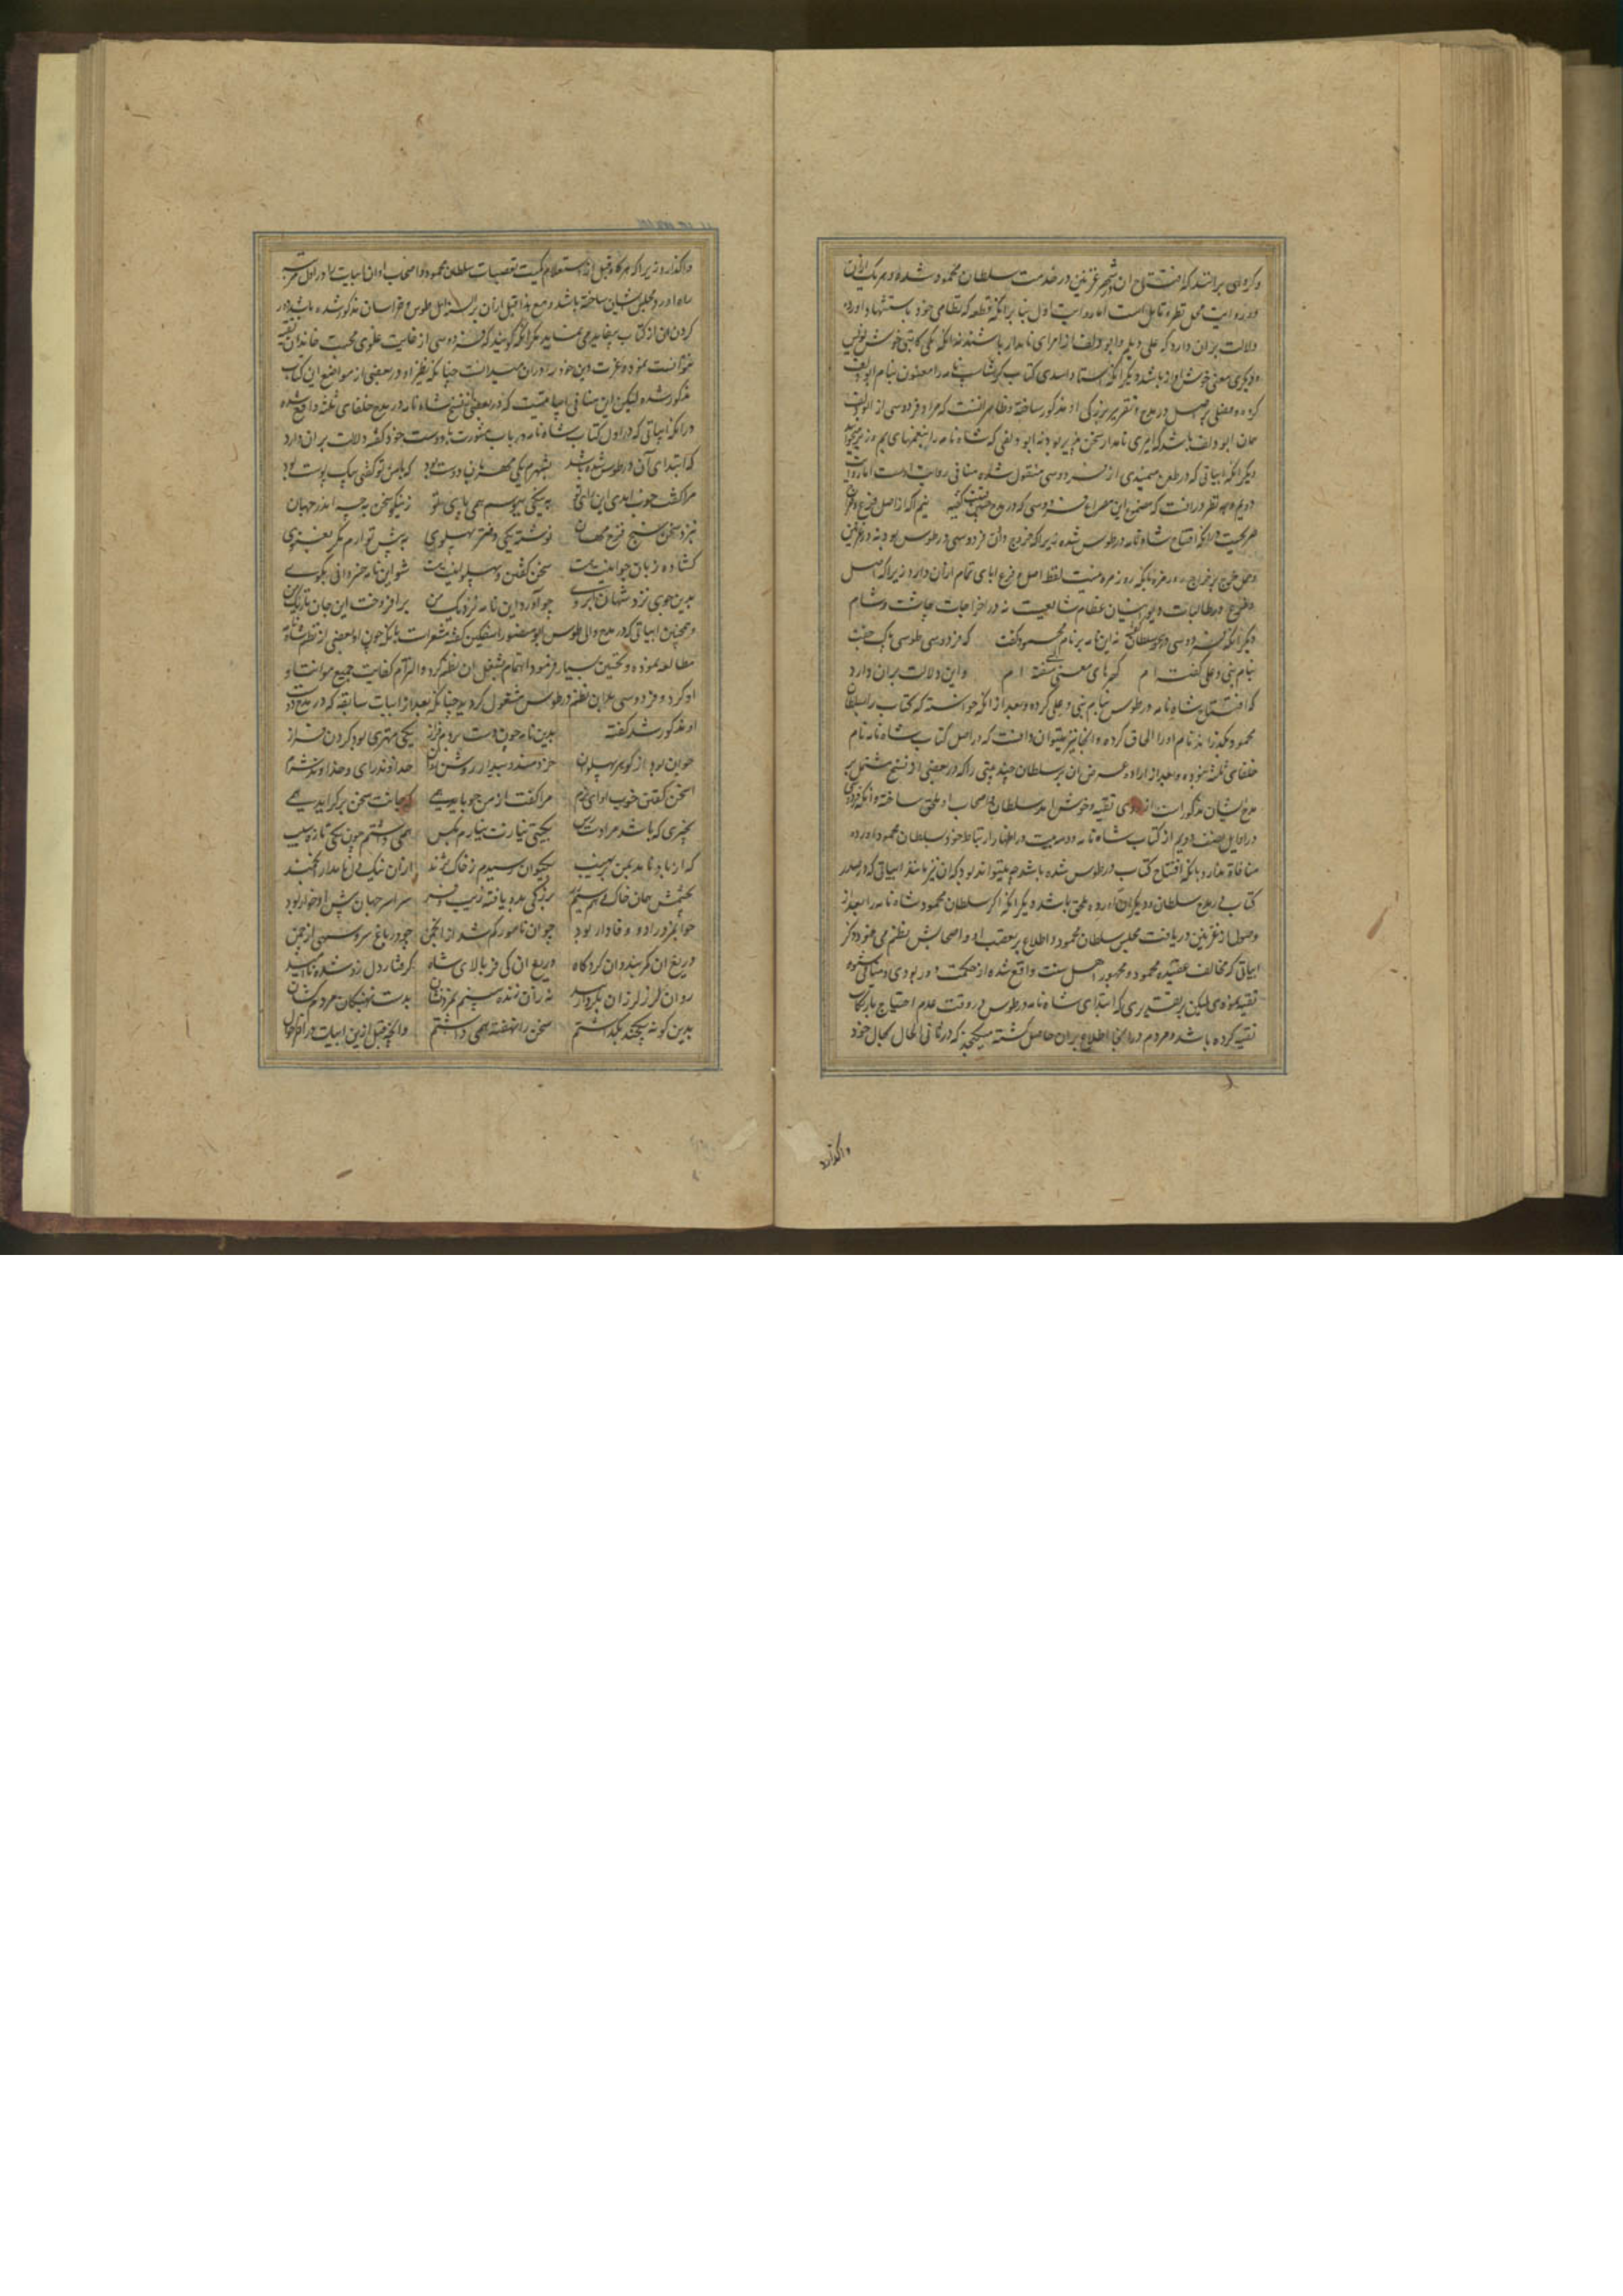 و کروهی برانند که افتتاح ان در شهر غزنین در خدمت سلطان محمود شده و هر یک ازین
دو روایت محل نظر و تامل است اما روایت اول بنا برانکه قطعه که نظامی خود باستشهاد اورده
دلالت بران دارد که علی دیلم و ابو دلف از امرای نامدار باشند نه انکه یکی کاتبی خوش نویس
و دیکری مغنی خوش اواز باشد دیکر انکه استاد اسدی کتاب کرشاسب نامه را معنون بنام ابو دلف
کرده و فصلی در مدح و تقریر بزرکی او مذکور ساخته و ظاهر انست که مراد فردوسی از ابو دلف
همان ابو دلف باشد که امیری نامدار سخن پذیر بود نه ابو دلفی که شاه نامه را
دیکر انکه ابیاتی که در طعن میمندی از فردوسی منقول شده منافی روایت اوست اما روایت
دویم وجه نظر در انست که مضمون این مصراع فردوسی که در مدح حسین قتیب کفته نیم اکه از اصل و فرع خراج
صریحست در انکه افتتاح شاه نامه در طوس شده زیرا که خراج وافی فردوسی در طوس بوده نه در غزنین
و حمل خرج بر خراج روزمره نیست لفظ اصل و فرع ابای تمام ازان دارد زیرا که اصل
و فرع در مطالبات دیوانیان عظام شایعست نه در اخراجات چاشت و شام
دیکر انکه فردوسی در هجو سلطان کفته نه این نامه بر نام محمود کفت که فردوسی طوسی پاک جفت
بنام نبی و علی کفته ام کهرهای معنی بسی سفته ام و این دلالت بران دارد
که افتتاح شاه نامه در طوس بنام نبی و علی کرده و بعد از انکه خواسته که کتاب را بسلطان
محمود بکذراند نام او را الحاق کرده و اینجا نیز میتوان دانست که در اصل کتاب شاه نامه نام
خلفای ثلثه نبوده و بعد از اراده عرض ان بر سلطان چند بیتی را که در بعضی از نسخ مشتمل بر
مدح ایشان مذکور است از روی تقیه و خوش امد سلطان و اصحاب او ملحق ساخته و انکه فردوسی
در اوایل نصف دویم از کتاب شاه نامه دو سه بیت در اظهار ارتباط خود بسلطان محمود اورده
منافاة ندارد بانکه افتتاح کتاب در طوس شده باشد چه میتواند بود که ان نیز مانند ابیاتی که در صدر
کتاب در مدح سلطان و دیکران اورده ملحق باشد دیکر انکه اکر سلطان محمود شاه نامه را بعد از
وصول از غزنین و دریافت مجلس سلطان محمود و اطلاع بر تعصب او و اصحابش بنظم می نمود ذکر
ابیاتی که مخالف عقیده محمود و جمهور اهل سنت واقع شده از حکمت دور بودی و منافی شیوه
تقیه نمودی لیکن بر تقدیری که ابتدای شاه نامه در طوس در وقت عدم احتیاج بارتکاب
تقیه کرده باشد و مردم را در انجا اطلاع بران حاصل کشته میکنجد که در ثانی الحال بحال خود
واکذارد
واکذارد زیرا که هر کاه قبل از استعلام کیفیت تعصبات سلطان محمود و اصحاب او ان ابیات را در اول مرتبه
ساه اورده و مجلس نشین ساخته باشد و مع هذا قبل ازان بر السنه اهل طوس و خراسان مذکور شده باشد دور
کردن ان از کتاب بیفایده می نماید مکر انکه کویند که فردوسی از غایت غلوی محبت خاندان تقیه
نتوانسته نمود و عزت دین خود را دران میدانست چنانکه نظیر او در بعضی از مواضع این کتاب
مذکور شده لیکن این منافی ابیاتیست که در بعضی از نسخ شاه نامه در مدح خلفای ثلثه واقع شده
و دیکر انکه ابیاتی که در اول کتاب شاه نامه در باب مشورت با دوست خود کفته دلالت بران دارد
که ابتدای آن در طوس شده باشد بشهرم یکی مهربان دوست بود که با من تو کفتی بیک پوست بود
مرا کفت خوب امد این رای تو به نیکی خرامد همی پای تو
نزد سخن سنج فرخ مهان نوشته یکی دفتر پهلوی به پیش تو ارم مکر نغنوی
کشاده زبان و جوانیت هست سخن کفتن پهلوانیت هست شو این نامه خسروانی بکوی
بدین جوی نزد مهان ابروی چو آورد این نامه نزدیک من برافروخت این جان تاریک من
و همچنین ابیاتی که در مدح والی طوس ابو منصور کفته مشعر است بانکه چون او بعضی از نظم شاه نامه
مطالعه نموده و تحسین بسیار فرمود و اهتمام بشغل ان نظم کرد و التزام کفایت جمیع مونات او
او کرد و فردوسی بران نظم در طوس مشغول کردید چنانکه بعد از ابیات سابقه که در مدح دوست
او مذکور شد کفته بدین نامه چون دست بردم فراز یکی مهتری بود کردن فراز
جوان بود از کوهر پهلوان خردمند و بیدار و روشن روان خداوند رای و خداوند شرم
سخن کفتن خوب و اوای نرم مرا کفت کز من چه باید همی که جانت سخن برکراید همی
بچیزی که باشد مرا دست رس بکیتی نیازت نیارم بکس همی داشتم چون یکی تازه سیب
که از باد نامد بمن بر نهیب بکیوان رسیدم ز خاک نژند ازان نیک دل نامدار ارجمند
بچشمش همان خاک و هم سیم و زر بزرکی بدو یافته زیب و فر سراسر جهان پیش او خوار بود
جوانمرد بود و وفادار بود چو ان نامور کم شد از انجمن چو در باغ سرو سهی از چمن
دریغ ان کمربند و ان کردکاه دریغ ان کی برز و بالای شاه کرفتار دل زو شده ناامید
روان لرز لرزان بکردار بید نه زو زنده بینم نه مرده نشان بدست نهنکان مردم کشان
بدین کونه یکچند بکذاشتم سخن را نهفته همی داشتم و انچه قبل ازین ابیات